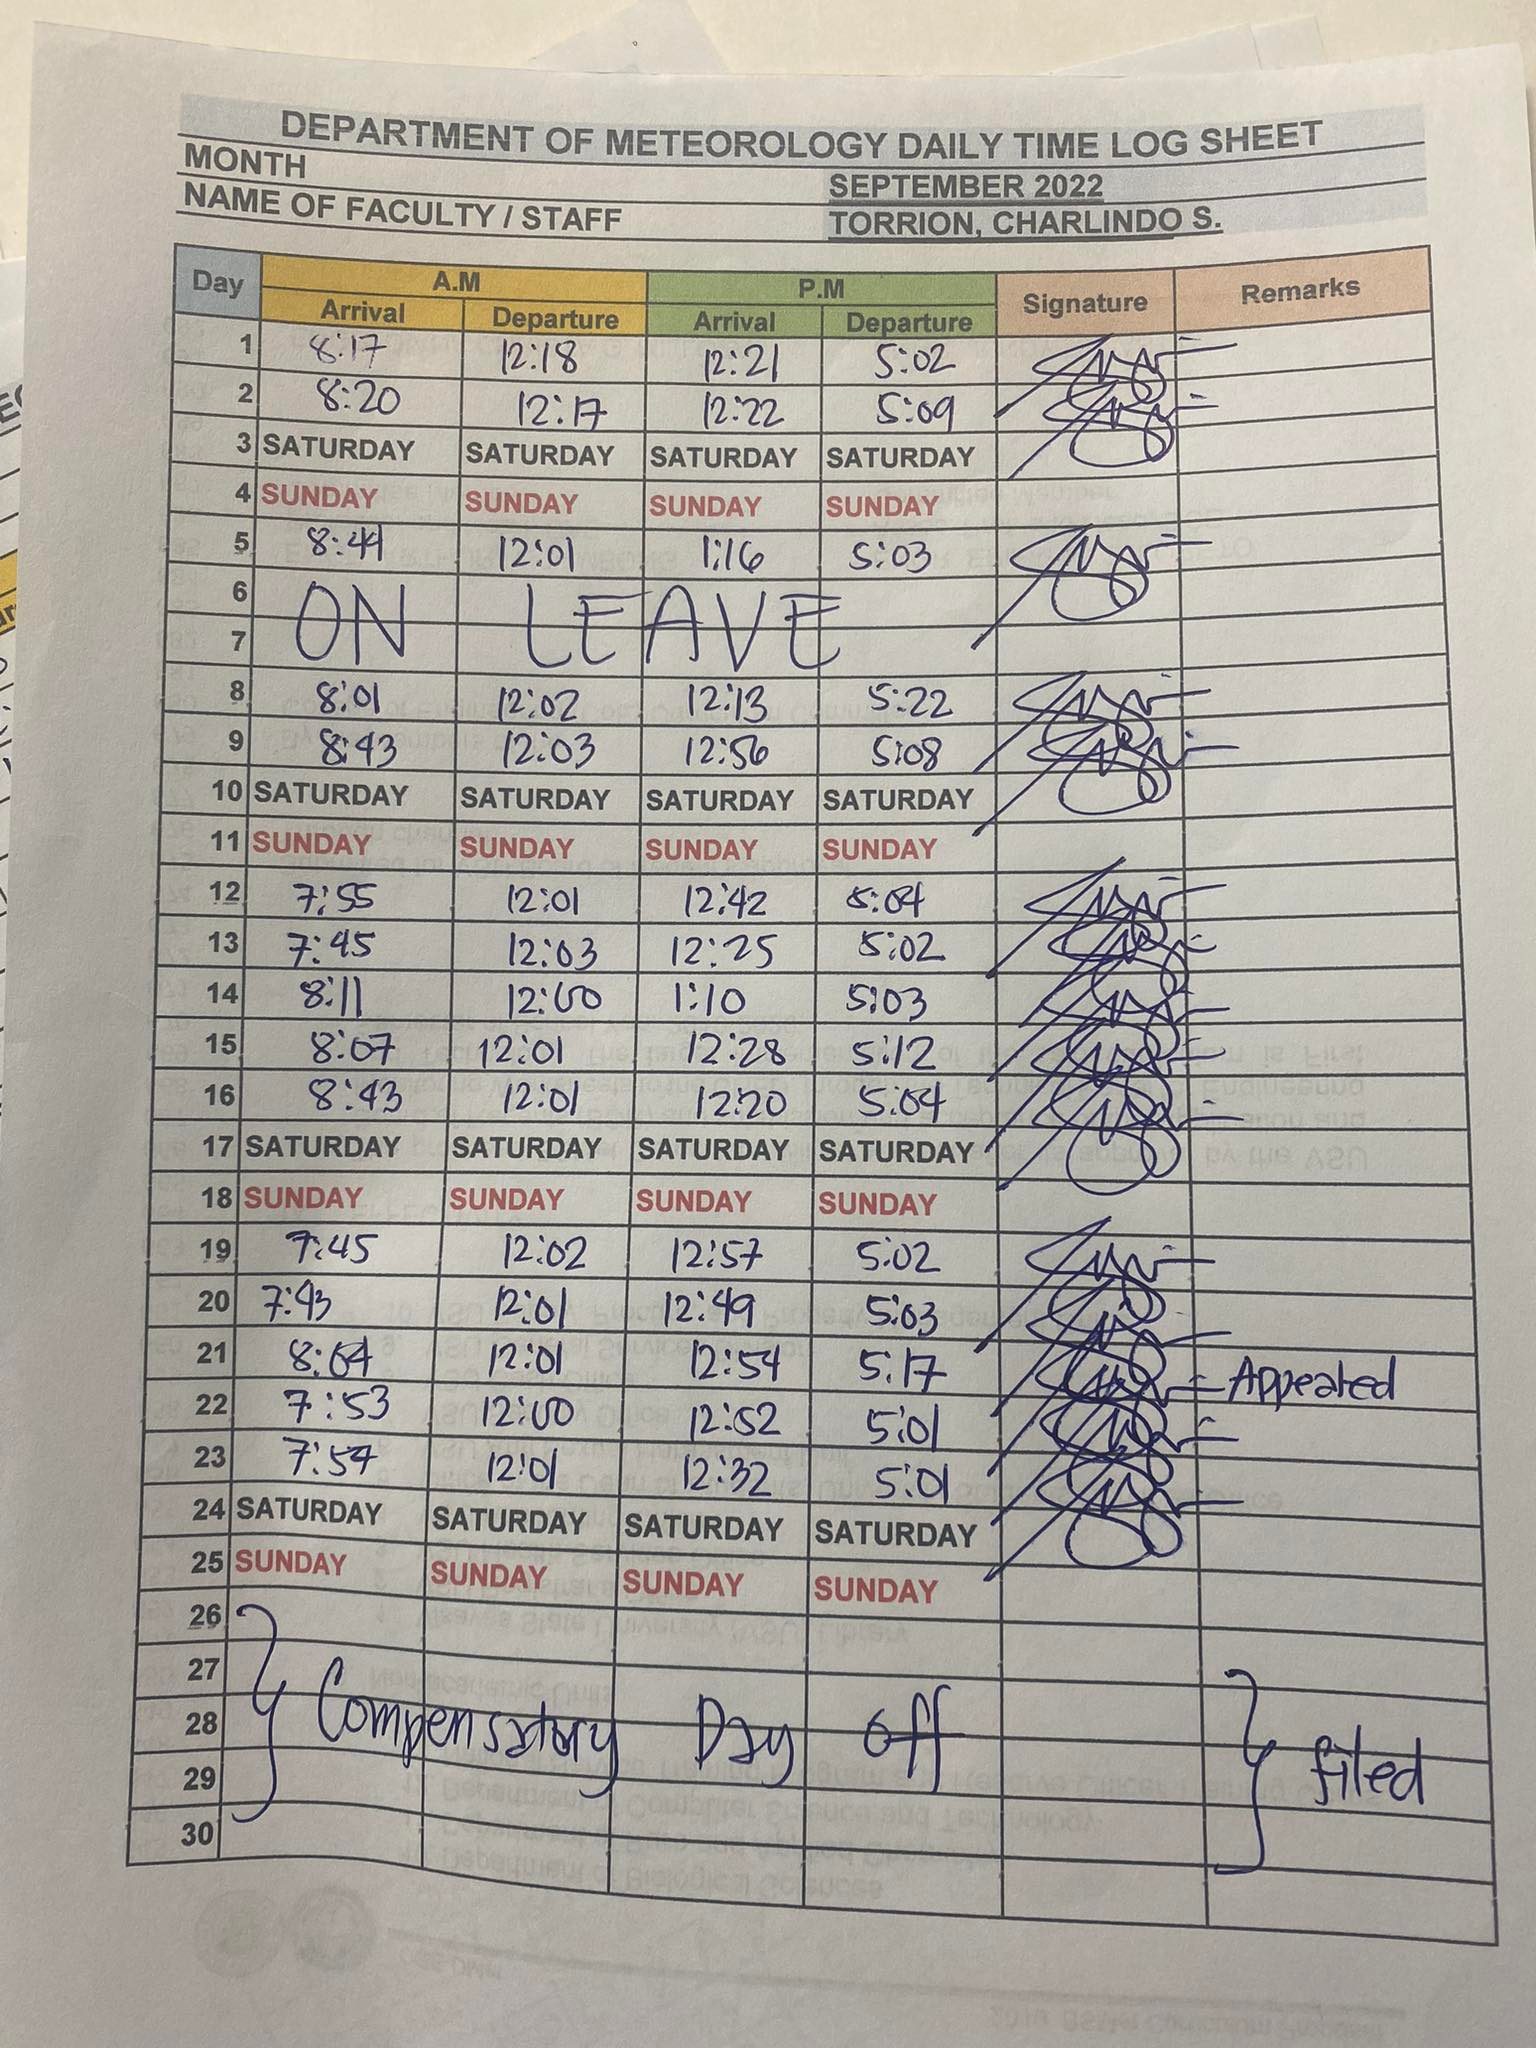 DEPARTMENT OF METEOROLOGY DAILY TIME LOG SHEET
MONTH SEPTEMBER 2022
NAME OF FACULTY / STAFF TORRION, CHARLINDO S.
Day A.M P.M Signature Remarks
Arrival Departure Arrival Departure
1 8:17 12:18 12:21 5:02
2 8:20 12:17 12:22 5:09
3 SATURDAY SATURDAY SATURDAY SATURDAY
4 SUNDAY SUNDAY SUNDAY SUNDAY
5 8:44 12:01 1:16 5:03
6
ON LEAVE
7
8 8:01 12:02 12:13 5:22
9 8:43 12:03 12:56 5:08
10 SATURDAY SATURDAY SATURDAY SATURDAY
11 SUNDAY SUNDAY SUNDAY SUNDAY
12 7:55 12:01 12:42 5:04
13 7:45 12:03 12:25 5:02
14 8:11 12:00 1:10 5:03
15 8:07 12:01 12:28 5:12
16 8:43 12:01 12:20 5:04
17 SATURDAY SATURDAY SATURDAY SATURDAY
18 SUNDAY SUNDAY SUNDAY SUNDAY
19 7:45 12:02 12:57 5:02
20 7:43 12:01 12:49 5:03
21 8:04 12:01 12:54 5:17 Appeated
22 7:53 12:00 12:52 5:01
23 7:54 12:01 12:32 5:01
24 SATURDAY SATURDAY SATURDAY SATURDAY
25 SUNDAY SUNDAY SUNDAY SUNDAY
26
27
28 Compensatory Day off filed
29
30